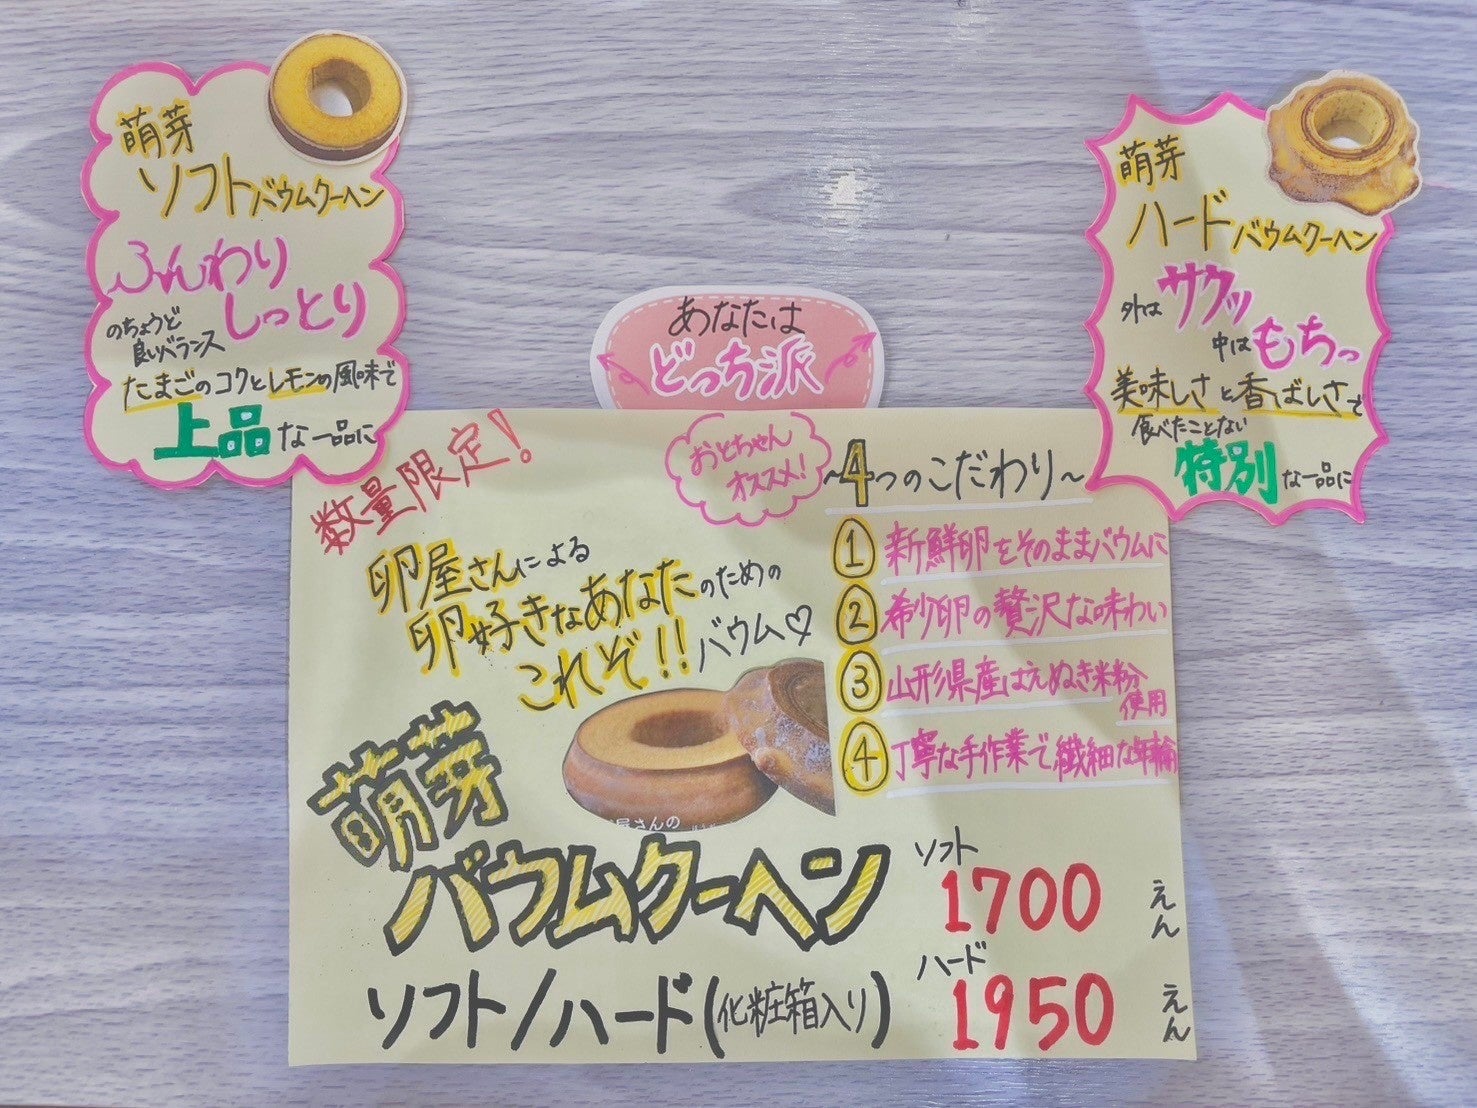 萌芽
ソフトバウムクーヘン
ふんわり
しっとり
のちょうど
良いバランス
たまごのコクとレモンの風味で
上品な一品に
萌芽
ハードバウムクーヘン
外はサクッ
中はもちっ
美味しさと香ばしさで
食べたことない
特別な一品に
あなたは
どっち派
数量限定!
おとちゃん
オススメ!
卵屋さんによる
卵好きなあなたのための
これぞ!!バウム♡
~4つのこだわり~
① 新鮮卵をそのままバウムに
② 希少卵の贅沢な味わい
③ 山形県産はえぬき米粉
使用
④ 丁寧な手作業で繊細な年輪
屋さんの
萌芽
バウムクーヘン
ソフト/ハード(化粧箱入り)
ソフト
1700えん
ハード
1950えん